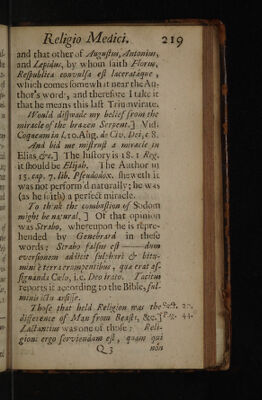 Religio Medici. 219
and that other of Augustus, Antonius,
and Lepidus, by whom saith Florus,
Respublica convulsa est lacerataque,
which comes somewh t near the Au-
thor's words, and therefore I take it
that he means this last Triumvirate.
Would disswade my belief from the
miracle of the brazen Serpent.] Vid.
Coqueum in l. 10. Aug. de Civ. Dei, c 8.
And bid me mistrust a miracle in
Elias, &c.] The history is 18. 1 Reg.
it should be Elijah. The Author in
15. cap. 7. lib. Pseudodox. sheweth it
was not perform'd naturally; he was
(as he saith) a perfect miracle.
To think the combustion of Sodom
might be natural.] Of that opinion
was Strabo, whereupon he is repre-
hended by Genebrard in these
words: Strabo falsus est —— dum
eversionem addicit sulphuri & bitu-
mini è terra erumpentibus, quæ erat as-
signanda Cœlo, i.e. Deo irato. Tacitus
reports it according to the Bible, ful-
minis ictu arsisse.
Those that held Religion was the
difference of Man from Beasts, &c.]
Lactantius was one of those: Reli-
gioni ergo serviendum est, quam qui
Q 3 non